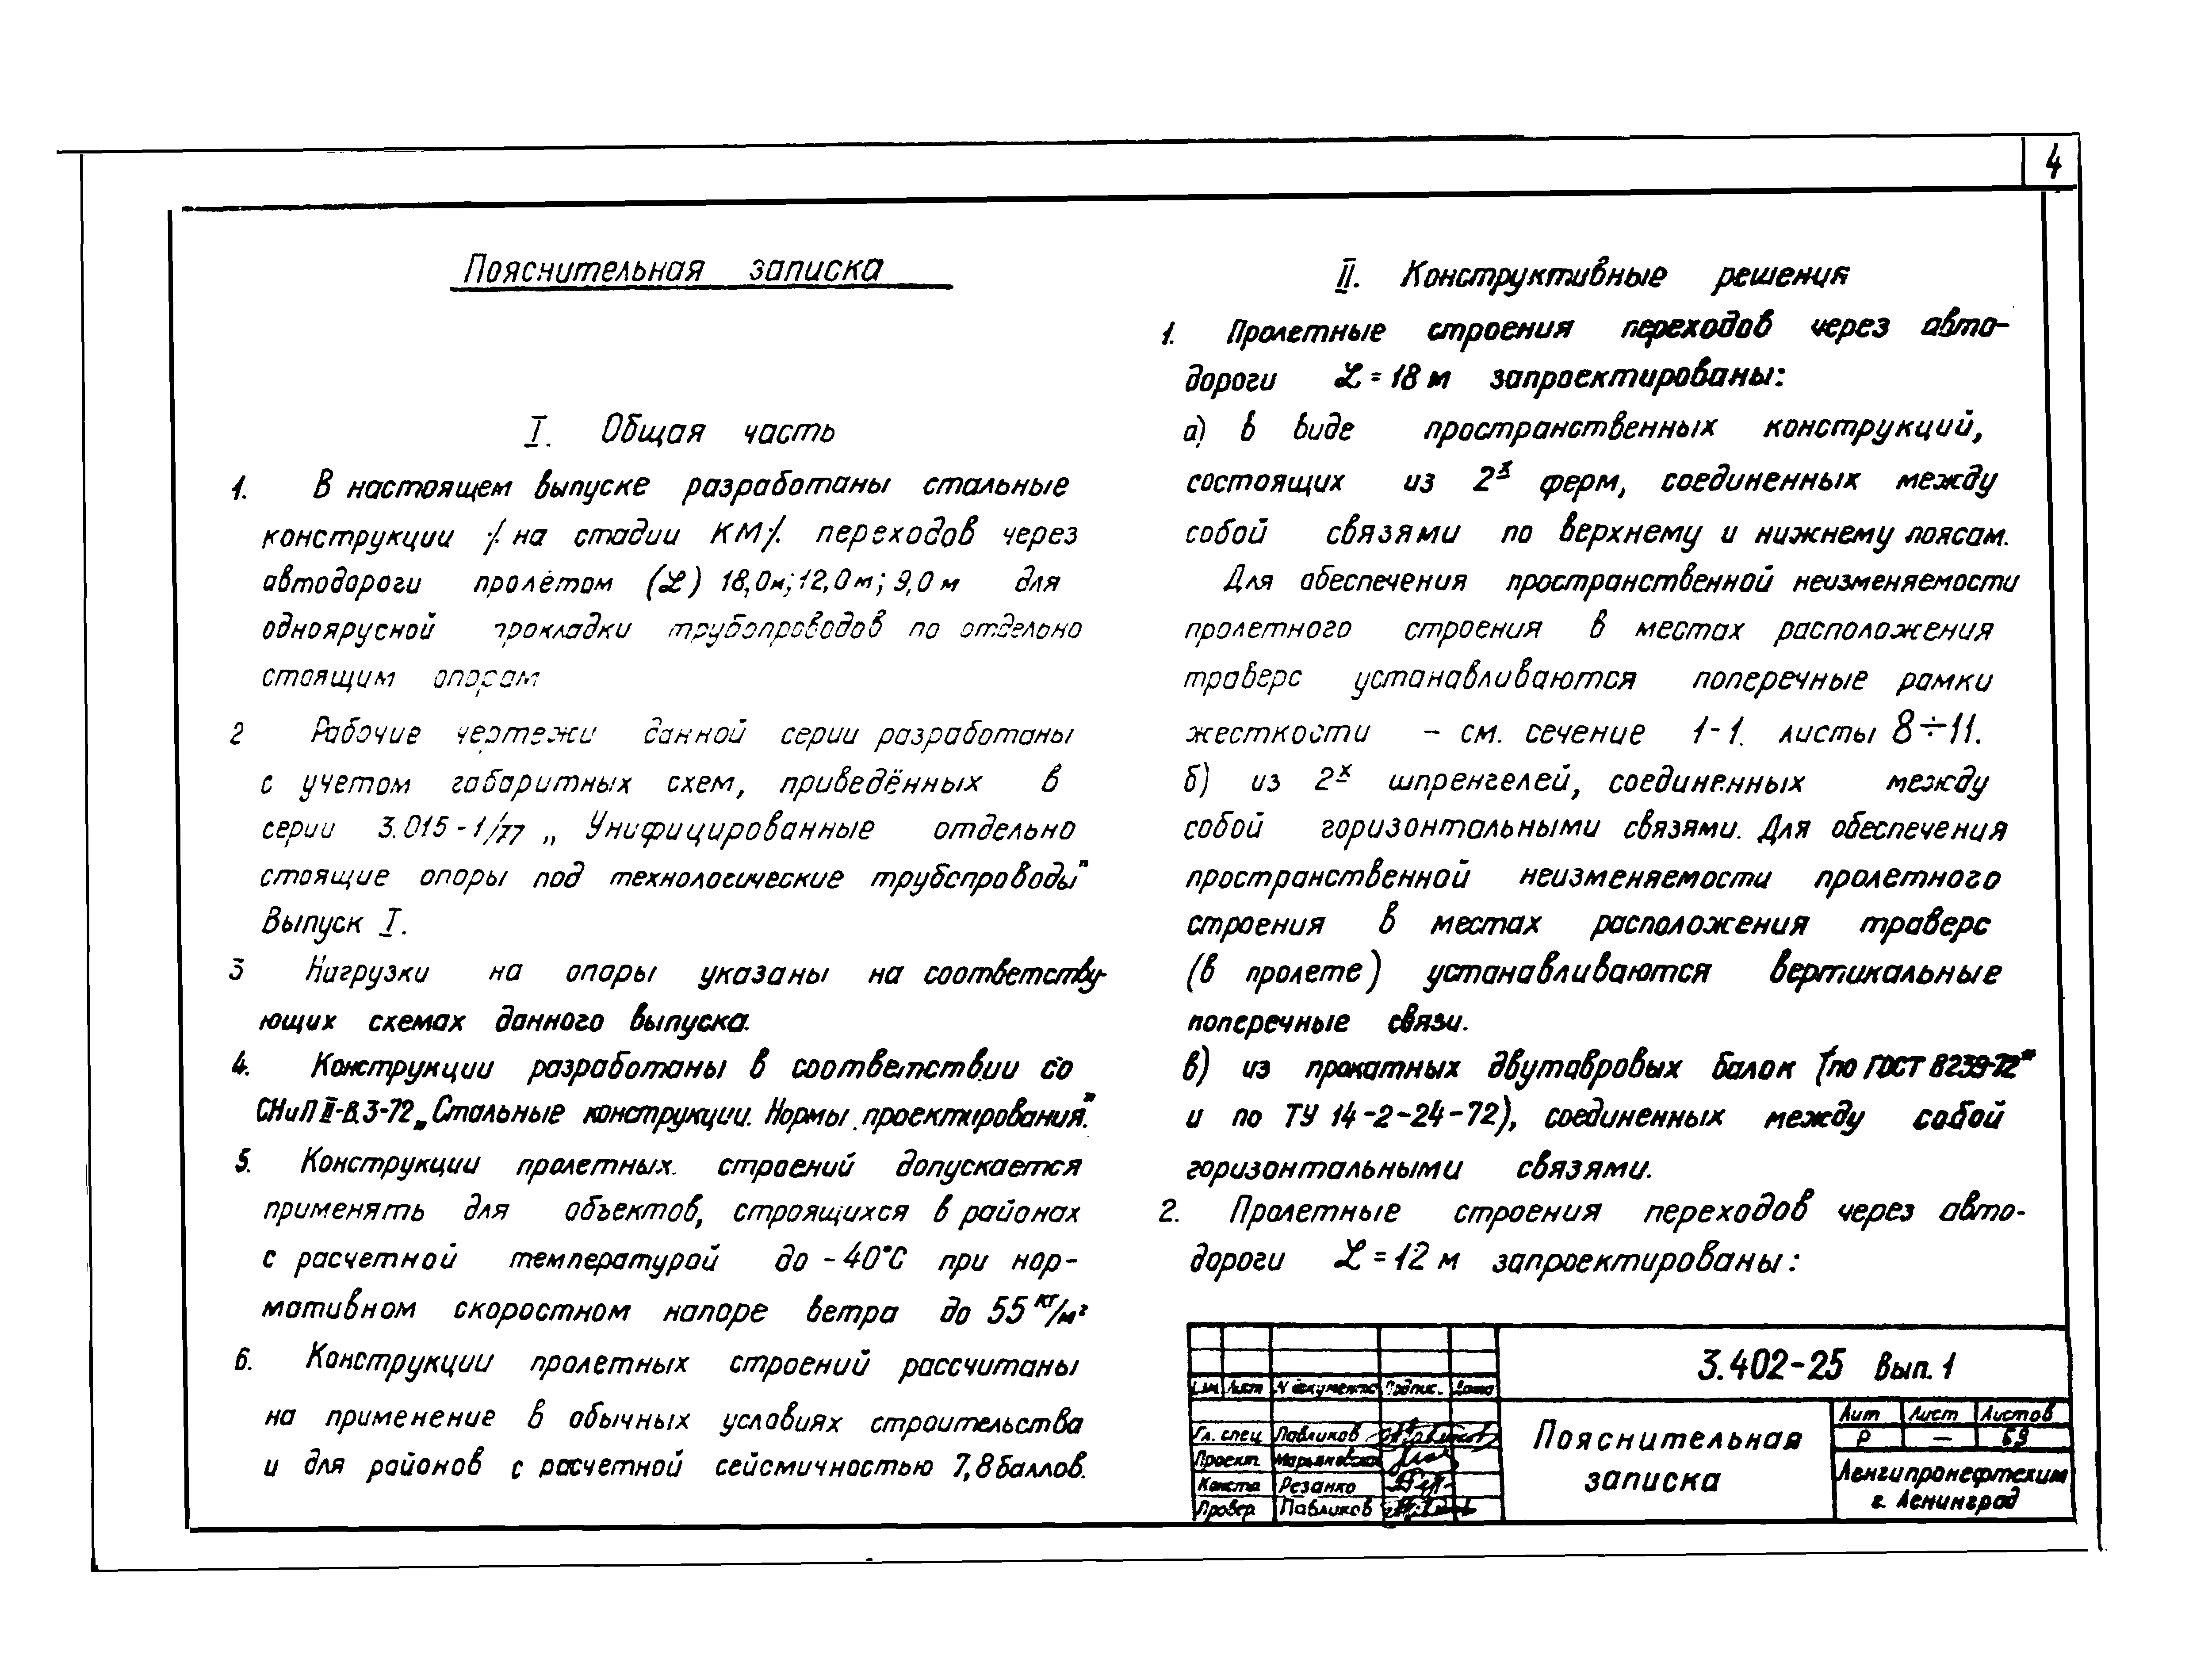 4
Пояснительная записка
I. Общая часть
1. В настоящем выпуске разработаны стальные
конструкции /. на стадии КМ/. переходов через
автодороги пролётом (L) 18,0м; 12,0м; 9,0м для
одноярусной прокладки трубопроводов по отдельно
стоящим опорам
2 Рабочие чертежи данной серии разработаны
с учетом габаритных схем, приведённых в
серии 3.015-1/77 „Унифицированные отдельно
стоящие опоры под технологические трубопроводы"
Выпуск I.
3 Нагрузки на опоры указаны на соответству-
ющих схемах данного выпуска.
4. Конструкции разработаны в соответствии со
СНиП II-В.3-72 „Стальные конструкции. Нормы проектирования".
5. Конструкции пролетных строений допускается
применять для объектов, строящихся в районах
с расчетной температурой до -40°С при нор-
мативном скоростном напоре ветра до 55 кг/м²
6. Конструкции пролетных строений рассчитаны
на применение в обычных условиях строительства
и для районов с расчетной сейсмичностью 7,8 баллов.
II. Конструктивные решения
1. Пролетные строения переходов через авто-
дороги L = 18 м запроектированы:
а) в виде пространственных конструкций,
состоящих из 2х ферм, соединенных между
собой связями по верхнему и нижнему поясам.
Для обеспечения пространственной неизменяемости
пролетного строения в местах расположения
траверс устанавливаются поперечные рамки
жесткости - см. сечение 1-1. листы 8÷11.
б) из 2х шпренгелей, соединенных между
собой горизонтальными связями. Для обеспечения
пространственной неизменяемости пролетного
строения в местах расположения траверс
(в пролете) устанавливаются вертикальные
поперечные связи.
в) из прокатных двутавровых балок (по ГОСТ 8239-72*
и по ТУ 14-2-24-72), соединенных между собой
горизонтальными связями.
2. Пролетные строения переходов через авто-
дороги L = 12 м запроектированы:
Изм Лист N документа Подпис. Дата
Гл. спец Павликов
Проект Марьяновская
Констр Резанко
Провер Павликов
3.402-25 Вып. 1
Пояснительная
записка
Лит Лист Листов
Р — 69
Ленгипронефтехим
г. Ленинград